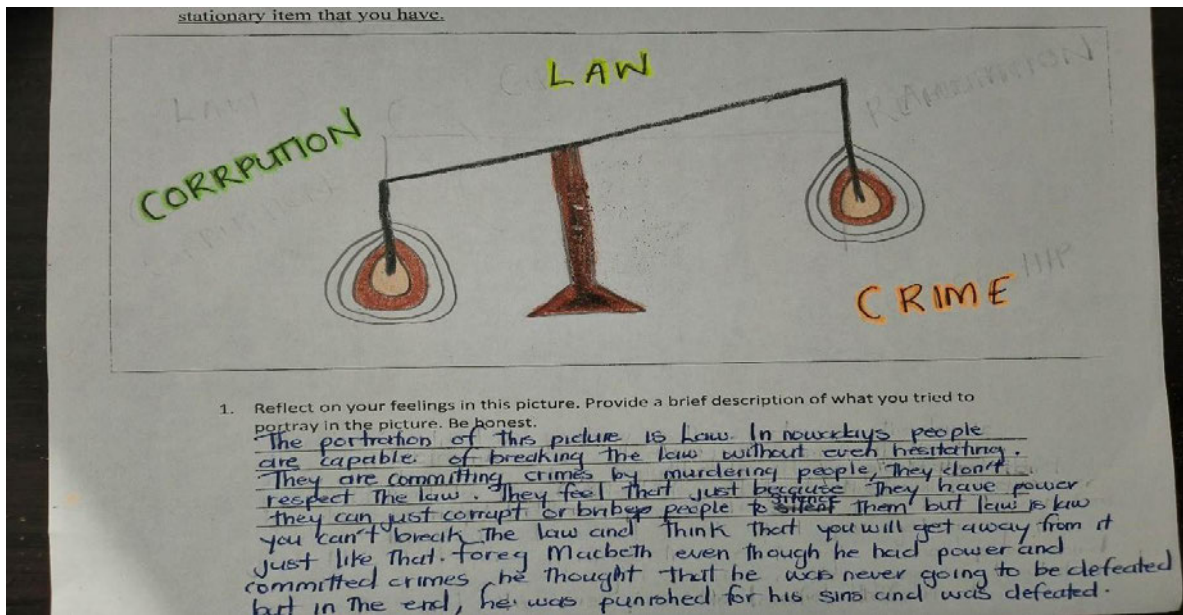 stationary item that you have.
LAW
CORRPUTION
CRIME
1. Reflect on your feelings in this picture. Provide a brief description of what you tried to
portray in the picture. Be honest.
The portration of this picture is Law. In nowadays people
are capable of breaking the law without even hesitating.
They are committing crimes by murdering people, They don't
respect The law. They feel That just because They have power
they can just corrupt or bribe people to silence Them but law is law
you can't break The law and Think That you will get away from it
just like That. for eg Macbeth even though he had power and
committed crimes he Thought that he was never going to be defeated
but in The end, he was punished for his sins and was defeated.